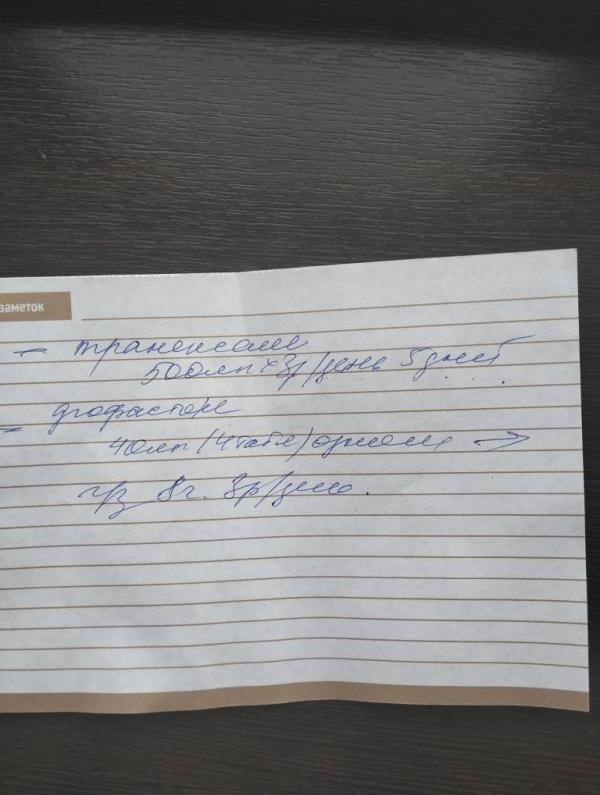 заметок
- транексам
500мг х 3р/день 5 дней
- дюфастон
40мг (4 табл) одном →
ч/з 8ч. 3р/день.